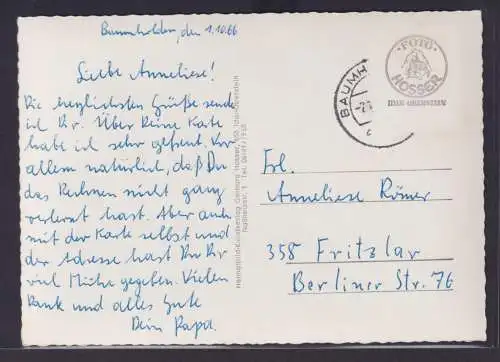 Baumholder, den 1.10.66
Liebe Anneliese!
Die herzlichsten Grüße sende
ich Dir. Über Deine Karte
habe ich sehr gefreut. Vor
allem natürlich, daß Du
das Rechnen nicht ganz
verlernt hast. Aber auch
mit der Karte selbst und
der Adresse hast Du Dir
viel Mühe gegeben. Vielen
Dank und alles Gute
Dein Papa.
FOTO
HOSSER
IDAR-OBERSTEIN
BAUMH
Frl.
Anneliese Römer
358 Fritzlar
Berliner Str. 76